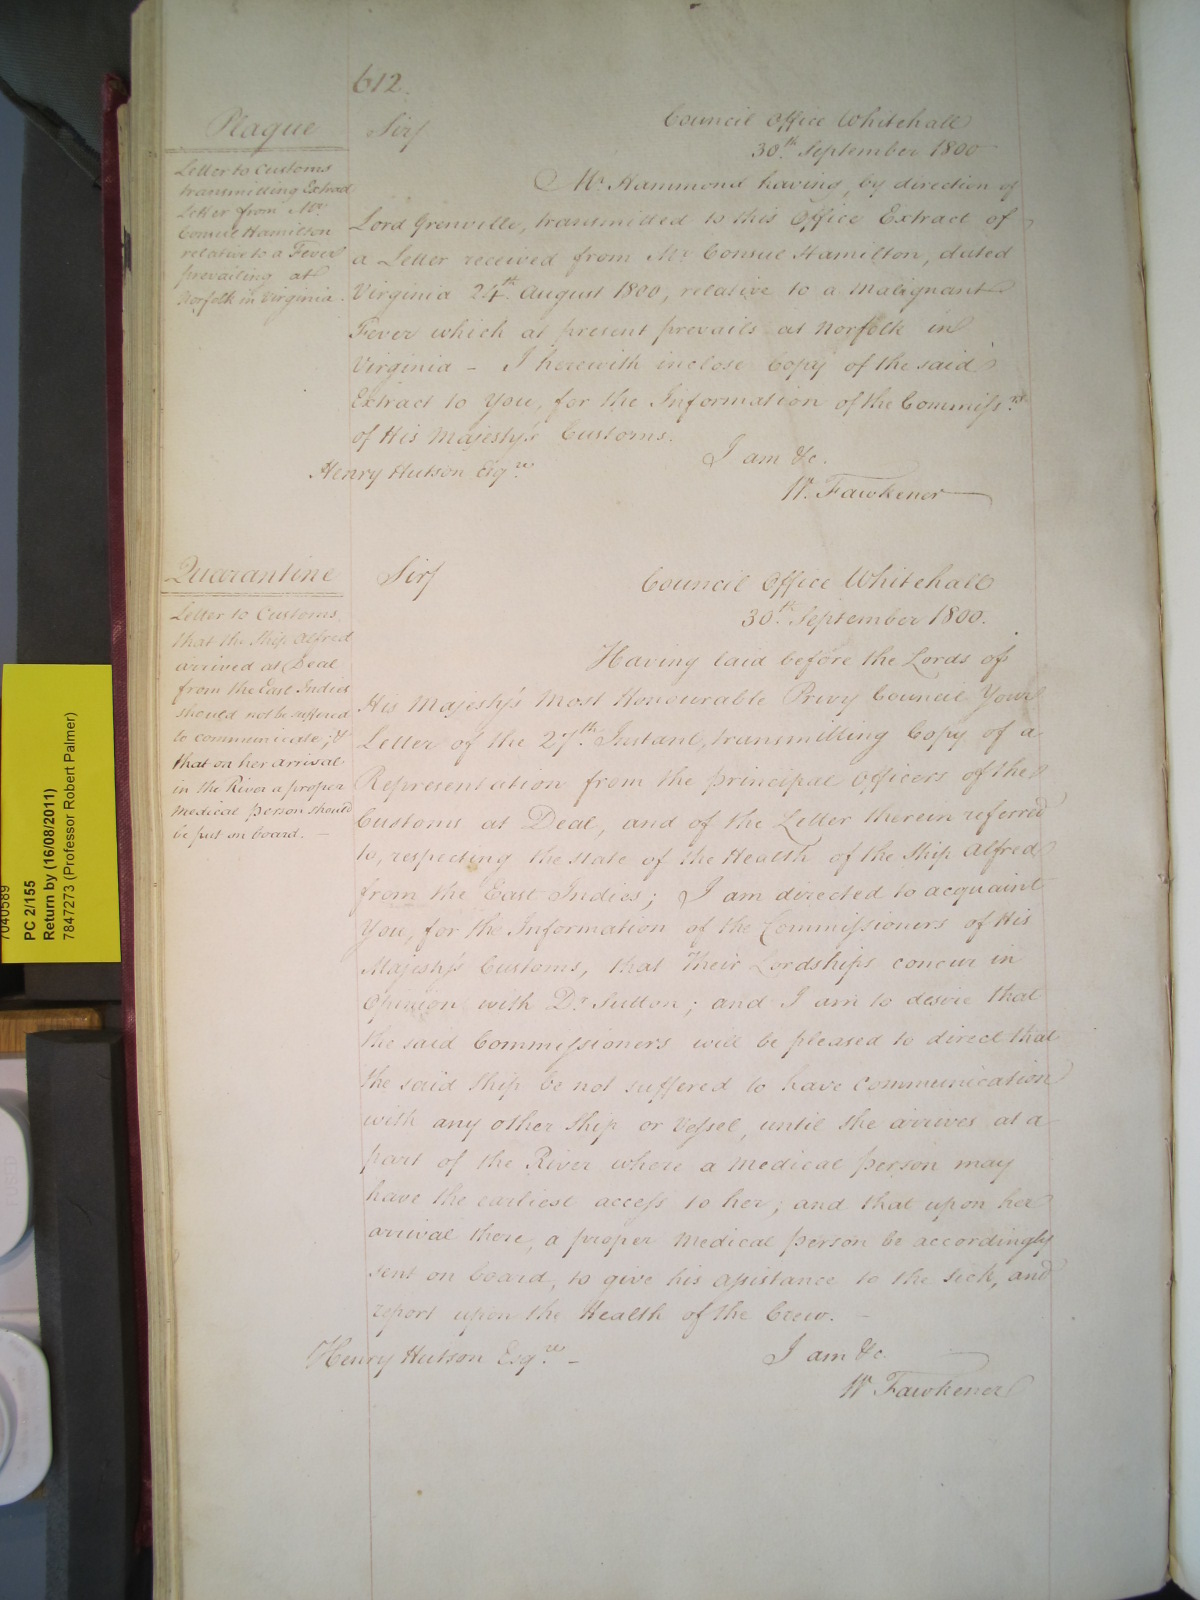 612.
Plaque
Letter to Customs
transmitting Extract
Letter from Mr
Consul Hamilton
relative to a Fever
prevailing at
Norfolk in Virginia.
Sir/
Council Office Whitehall
30th September 1800
Mr Hammond having, by direction of
Lord Grenville, transmitted to this Office Extract of
a Letter received from Mr Consul Hamilton, dated
Virginia 24th August 1800, relative to a Malignant
Fever which at present prevails at Norfolk in
Virginia – I herewith inclose Copy of the said
Extract to You, for the Information of the Commissrs
of His Majesty's Customs.
I am &c.
Henry Hutson Esqre
W. Fawkener
Quarantine
Letter to Customs
that the Ship Alfred
arrived at Deal
from the East Indies
should not be suffered
to communicate; &
that on her arrival
in the River a proper
medical person should
be put on board. –
Sir/
Council Office Whitehall
30th September 1800.
Having laid before the Lords of
His Majesty's Most Honourable Privy Council Your
Letter of the 27th Instant, transmitting Copy of a
Representation from the principal Officers of the
Customs at Deal, and of the Letter therein referred
to, respecting the state of the Health of the Ship Alfred
from the East Indies; I am directed to acquaint
You, for the Information of the Commissioners of His
Majesty's Customs, that Their Lordships concur in
Opinion with Dr Sutton; and I am to desire that
the said Commissioners will be pleased to direct that
the said Ship be not suffered to have communication
with any other Ship or Vessel, until she arrives at a
part of the River where a medical person may
have the earliest access to her; and that upon her
arrival there, a proper Medical person be accordingly
sent on board, to give his assistance to the sick, and
report upon the Health of the Crew. –
I am &c
Henry Hutson Esqre –
W Fawkener
7040589
PC 2/155
Return by (16/08/2011)
7847273 (Professor Robert Palmer)